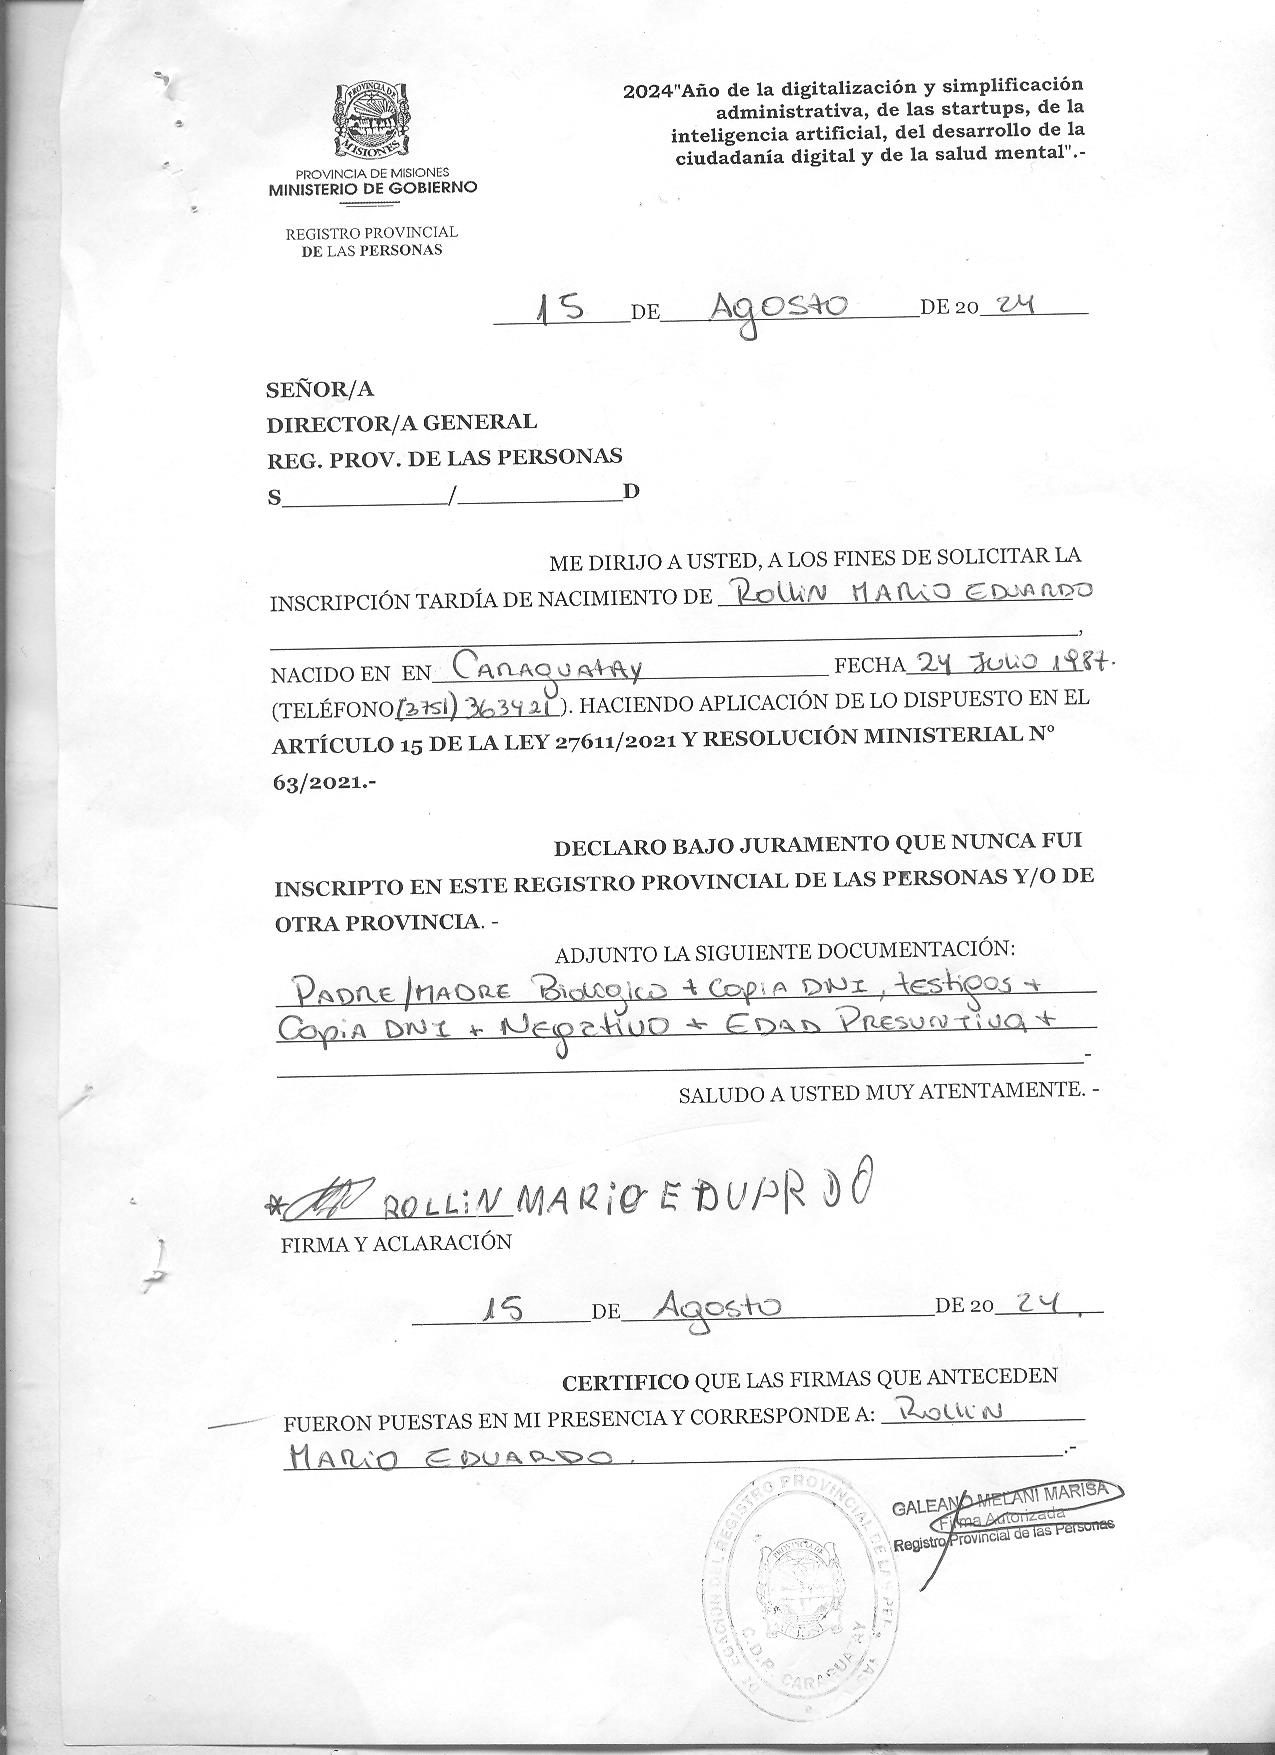 2024"Año de la digitalización y simplificación
administrativa, de las startups, de la
inteligencia artificial, del desarrollo de la
ciudadanía digital y de la salud mental".-
PROVINCIA DE
MISIONES
PROVINCIA DE MISIONES
MINISTERIO DE GOBIERNO
REGISTRO PROVINCIAL
DE LAS PERSONAS
15 DE Agosto DE 2024
SEÑOR/A
DIRECTOR/A GENERAL
REG. PROV. DE LAS PERSONAS
S____________/____________D
ME DIRIJO A USTED, A LOS FINES DE SOLICITAR LA
INSCRIPCIÓN TARDÍA DE NACIMIENTO DE Rollin MARIO EDUARDO
,
NACIDO EN EN CARAGUATAY FECHA 24 Julio 1987.
(TELÉFONO (3751) 363421). HACIENDO APLICACIÓN DE LO DISPUESTO EN EL
ARTÍCULO 15 DE LA LEY 27611/2021 Y RESOLUCIÓN MINISTERIAL N°
63/2021.-
DECLARO BAJO JURAMENTO QUE NUNCA FUI
INSCRIPTO EN ESTE REGISTRO PROVINCIAL DE LAS PERSONAS Y/O DE
OTRA PROVINCIA. -
ADJUNTO LA SIGUIENTE DOCUMENTACIÓN:
PADRE/MADRE Biologico + Copia DNI, testigos +
Copia DNI + Negativo + EDAD PRESUNTIVA +
-
SALUDO A USTED MUY ATENTAMENTE. -
* ROLLIN MARIO EDUARDO
FIRMA Y ACLARACIÓN
15 DE Agosto DE 2024.
CERTIFICO QUE LAS FIRMAS QUE ANTECEDEN
FUERON PUESTAS EN MI PRESENCIA Y CORRESPONDE A: Rollin
MARIO EDUARDO. .-
GALEANO MELANI MARISA
Firma Autorizada
Registro Provincial de las Personas
DEL REGISTRO PROVINCIAL DE LAS
PROVINCIA DE
C.D.R. CARAGUATAY